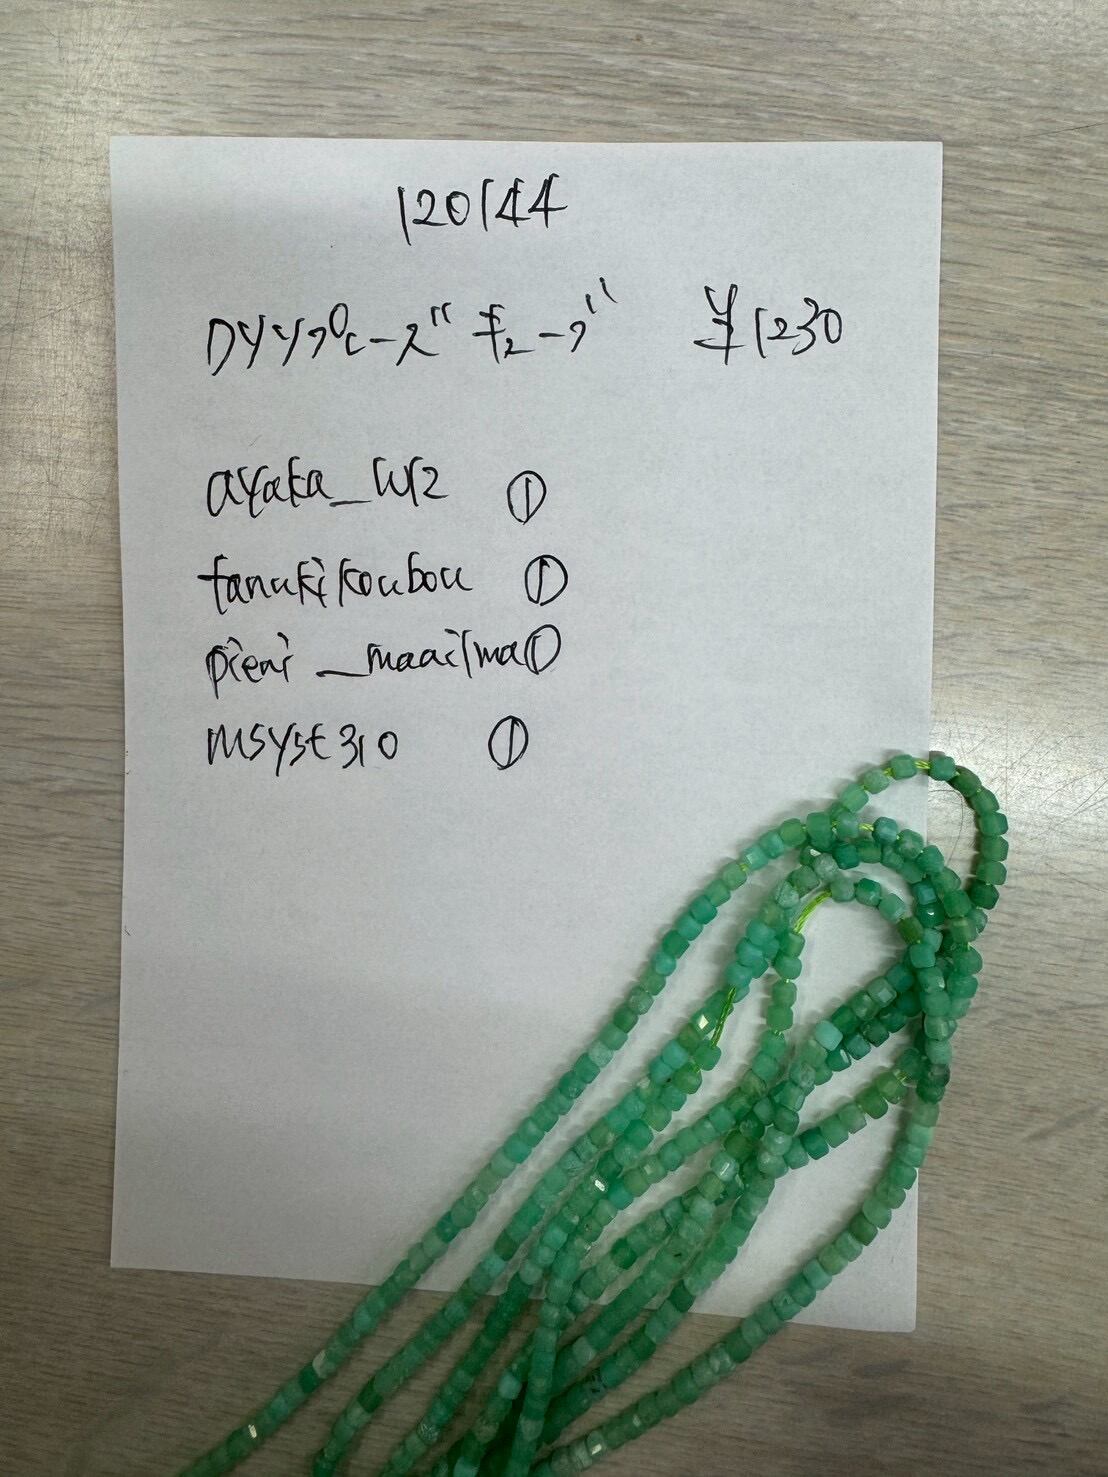 120144
クリソプレーズ キューブ ¥1230
ayaka_w12 ①
tanukikoubou ①
pieni_maailma ①
msyst310 ①